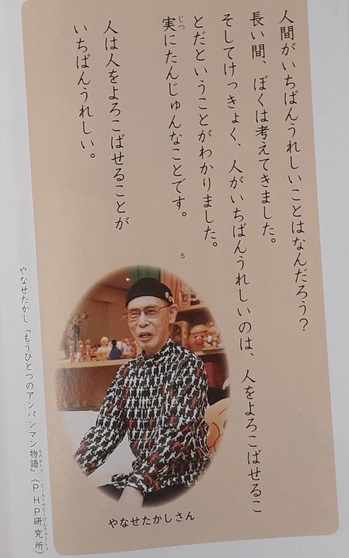 人間がいちばんうれしいことはなんだろう？
長い間、ぼくは考えてきました。
そしてけっきょく、人がいちばんうれしいのは、人をよろこばせるこ
とだということがわかりました。
実にたんじゅんなことです。
人は人をよろこばせることが
いちばんうれしい。
5
やなせたかしさん
やなせたかし『もうひとつのアンパンマン物語』（ＰＨＰ研究所）